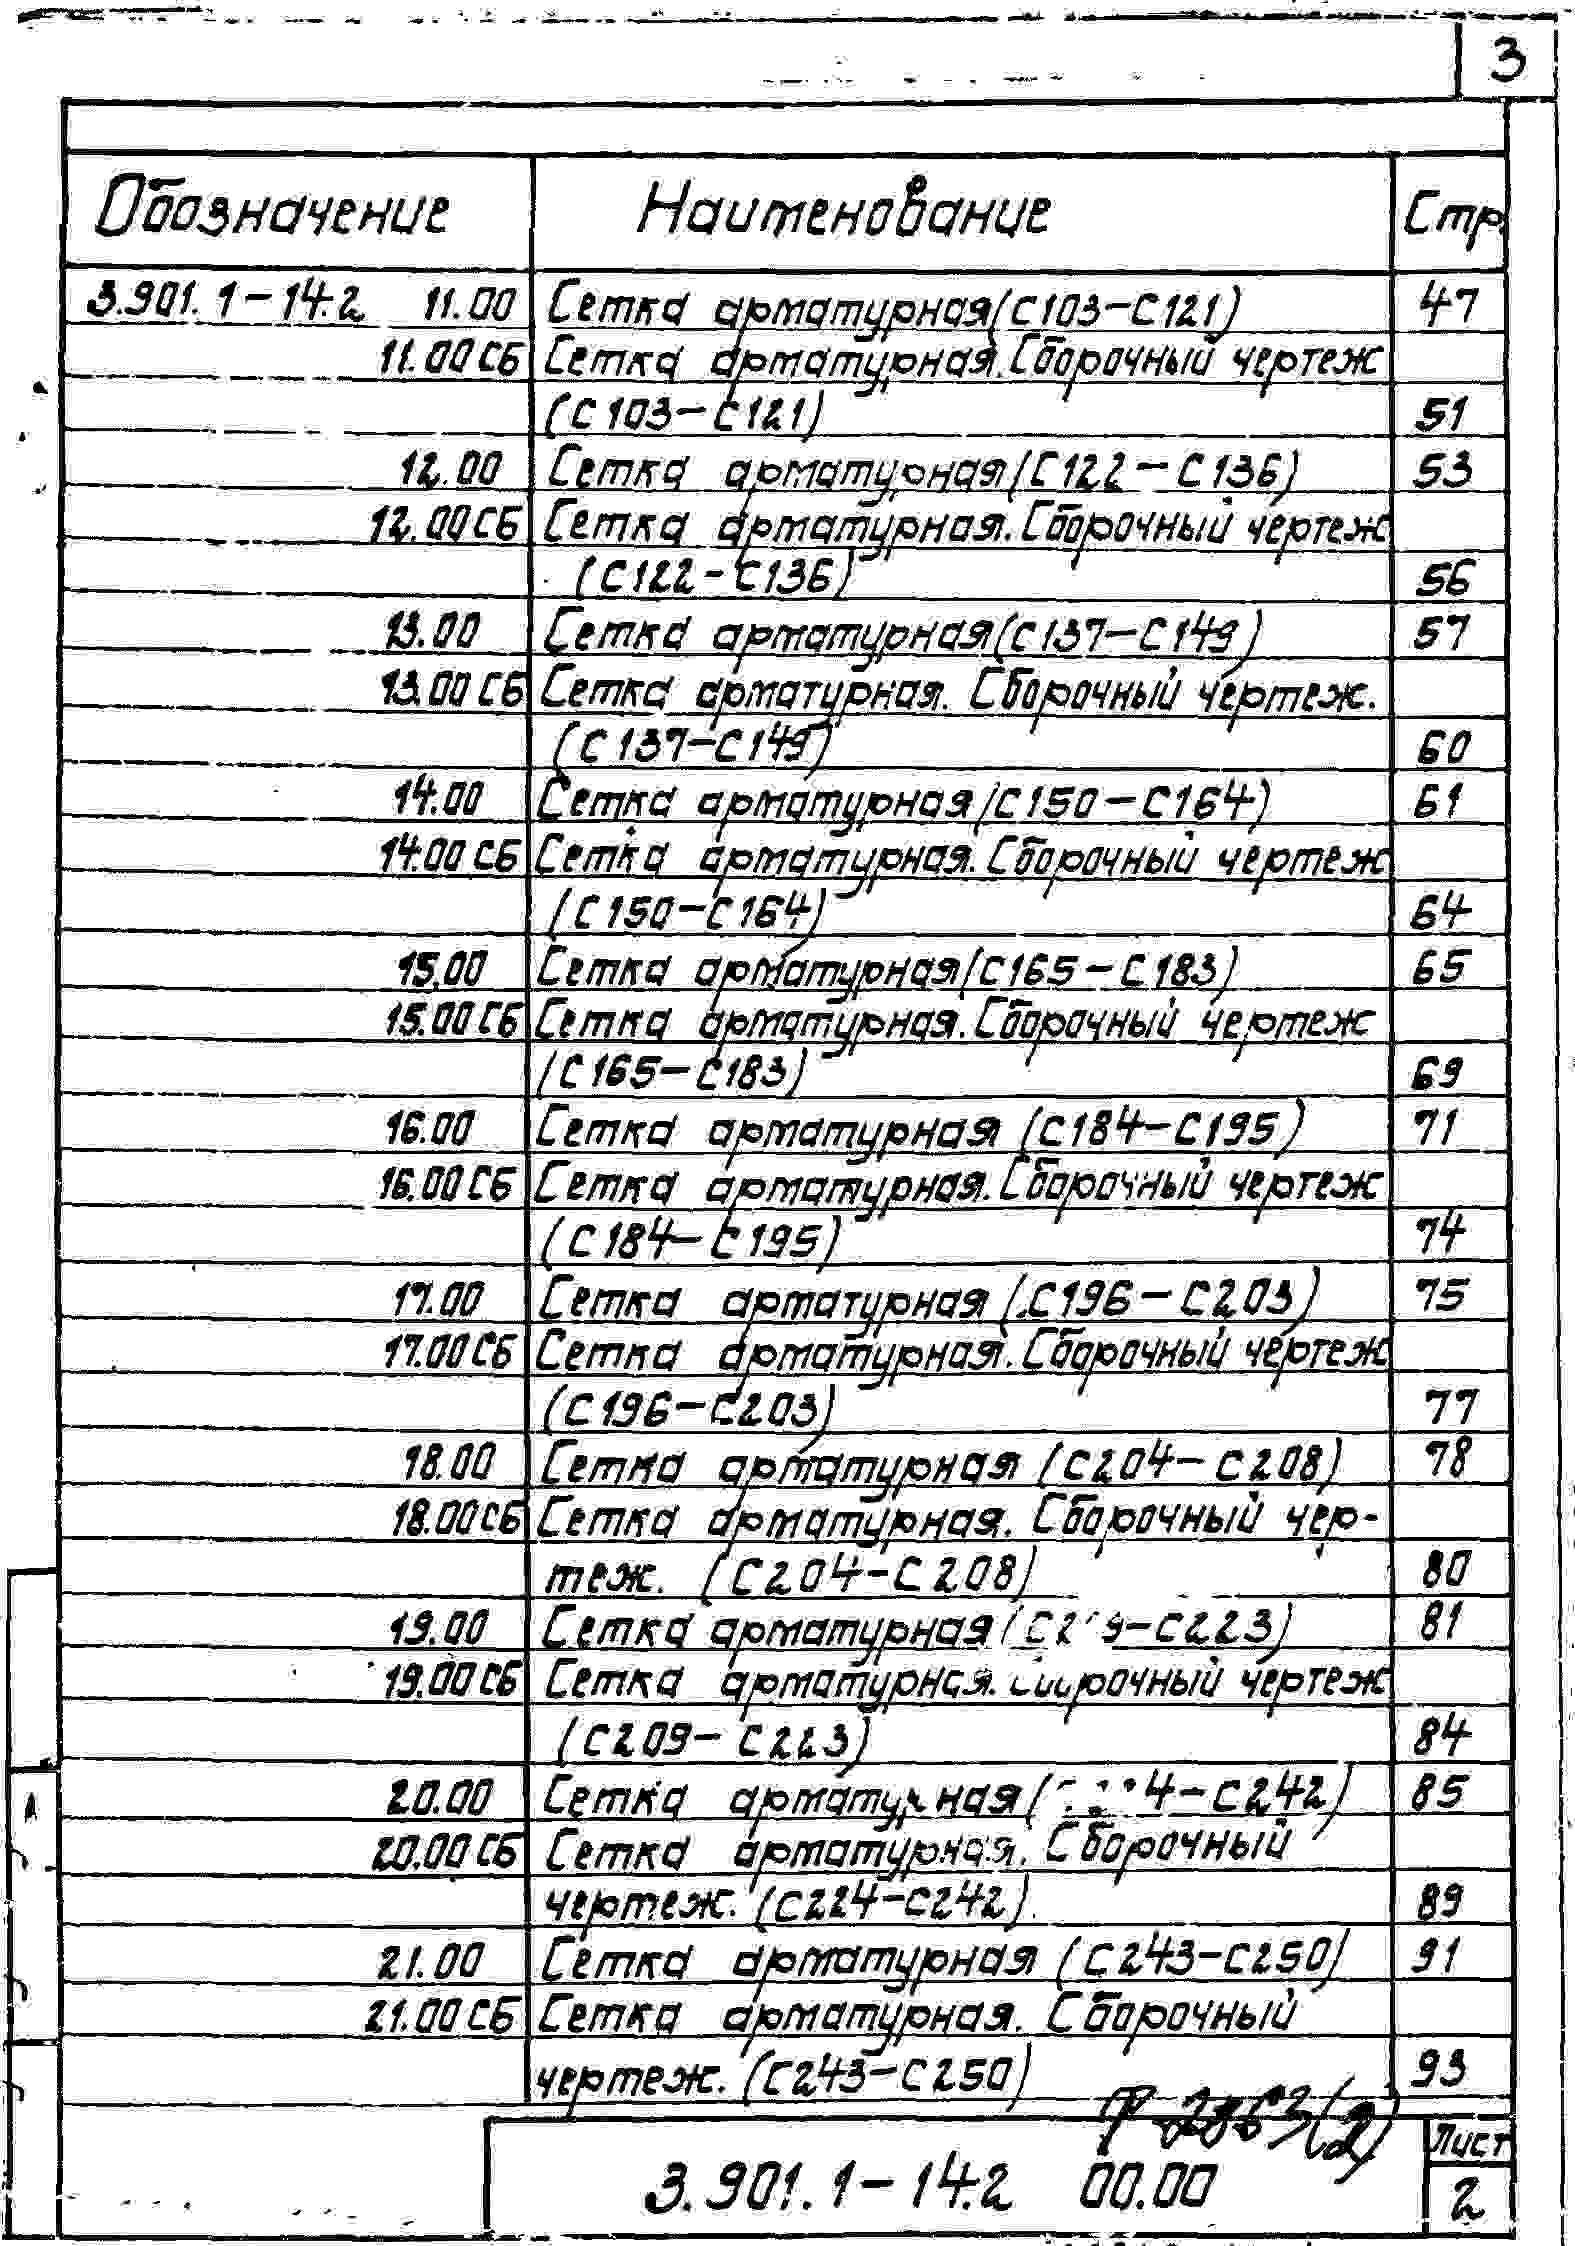 3
Обозначение Наименование Стр.
3.901.1-14.2 11.00 Сетка арматурная(С103-С121) 47
11.00СБ Сетка арматурная.Сборочный чертеж
(С103-С121) 51
12.00 Сетка арматурная(С122-С136) 53
12.00СБ Сетка арматурная.Сборочный чертеж
(С122-С136) 56
13.00 Сетка арматурная(С137-С149) 57
13.00СБ Сетка арматурная. Сборочный чертеж.
(С137-С149) 60
14.00 Сетка арматурная(С150-С164) 61
14.00СБ Сетка арматурная.Сборочный чертеж
(С150-С164) 64
15.00 Сетка арматурная(С165-С183) 65
15.00СБ Сетка арматурная.Сборочный чертеж
(С165-С183) 69
16.00 Сетка арматурная (С184-С195) 71
16.00СБ Сетка арматурная.Сборочный чертеж
(С184-С195) 74
17.00 Сетка арматурная (С196-С203) 75
17.00СБ Сетка арматурная.Сборочный чертеж
(С196-С203) 77
18.00 Сетка арматурная (С204-С208) 78
18.00СБ Сетка арматурная. Сборочный чер-
теж. (С204-С208) 80
19.00 Сетка арматурная (С209-С223) 81
19.00СБ Сетка арматурная. Сборочный чертеж
(С209-С223) 84
20.00 Сетка арматурная ( 4-С242) 85
20.00СБ Сетка арматурная. Сборочный
чертеж. (С224-С242). 89
21.00 Сетка арматурная (С243-С250) 91
21.00СБ Сетка арматурная. Сборочный
чертеж. (С243-С250) 93
3.901.1-14.2 00.00
Лист
2